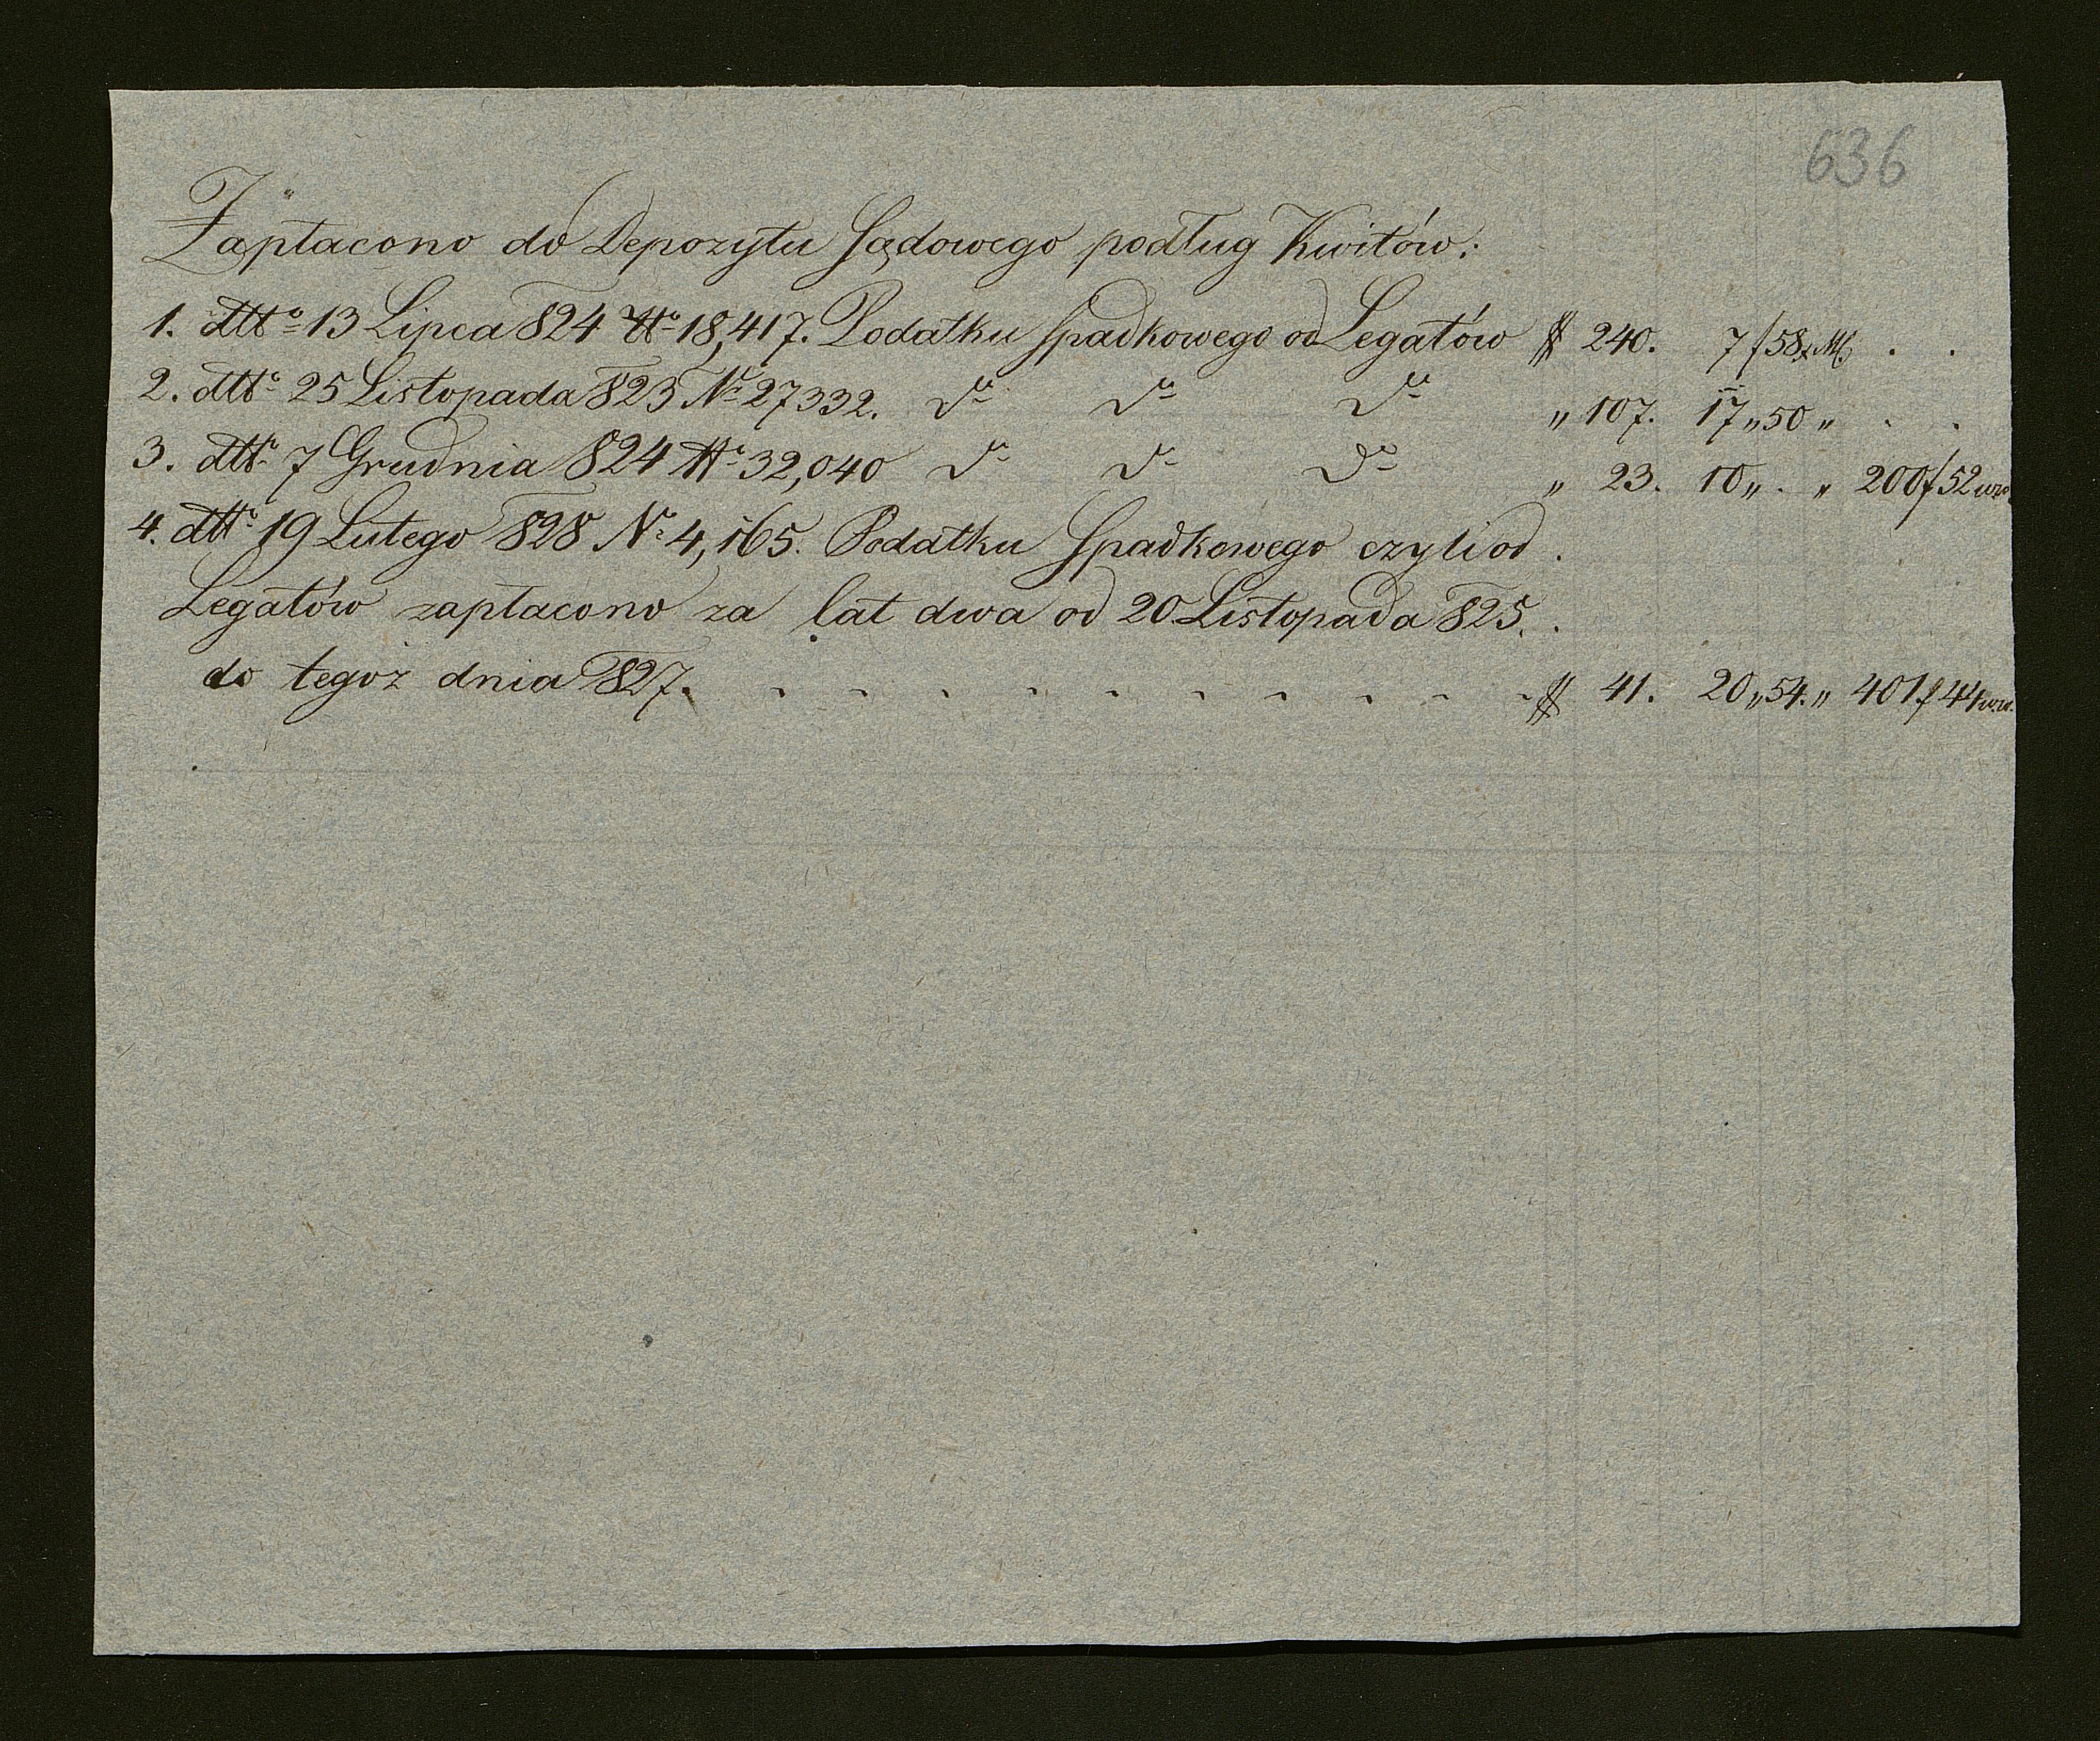 636
Zapłacono do Depozytu Sądowego podług Kwitów:
1. dtto 13 Lipca 824 No 18,417. Podatku spadkowego od Legatów # 240. 7 f 58 x M. . .
2. dtto 25 Listopada 823 No 27332. do do do " 107. 17 " 50 " . .
3. dtto 7 Grudnia 824 No 32,040 do do do " 23. 10 " . " 200 f 52 ww.
4. dtto 19 Lutego 828 No 4,165. Podatku Spadkowego czyli od .
Legatów zapłacono za lat dwa od 20 Listopada 825. .
do tegoż dnia 827. - - - - - - - - - - - # 41. 20 " 54. " 401 f 44 w.w.